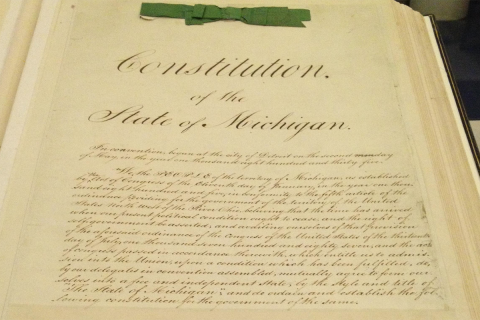 Constitution.
of the
State of Michigan.
In convention, begun at the city of Detroit on the second monday
of May, in the year one thousand eight hundred and thirty five:
We, the PEOPLE of the territory of Michigan, as established
by Act of Congress of the Eleventh day of January, in the year one thou-
sand eight hundred and five, in conformity to the fifth article of the
ordinance providing for the government of the territory of the United
States North West of the River Ohio, believing that the time has arrived
when our present political condition ought to cease, and the right of
self-government be asserted; and availing ourselves of that provision
of the aforesaid ordinance of the congress of the United States of the thirteenth
day of july, one thousand seven hundred and eighty seven, and the acts
of congress passed in accordance therewith, which entitle us to admis-
sion into the Union, upon a condition which has been fulfilled, do,
by our delegates in convention assembled, mutually agree to form our-
selves into a free and independent state, by the style and title of
"The State of Michigan," and do ordain and establish the fol-
lowing constitution for the government of the same.